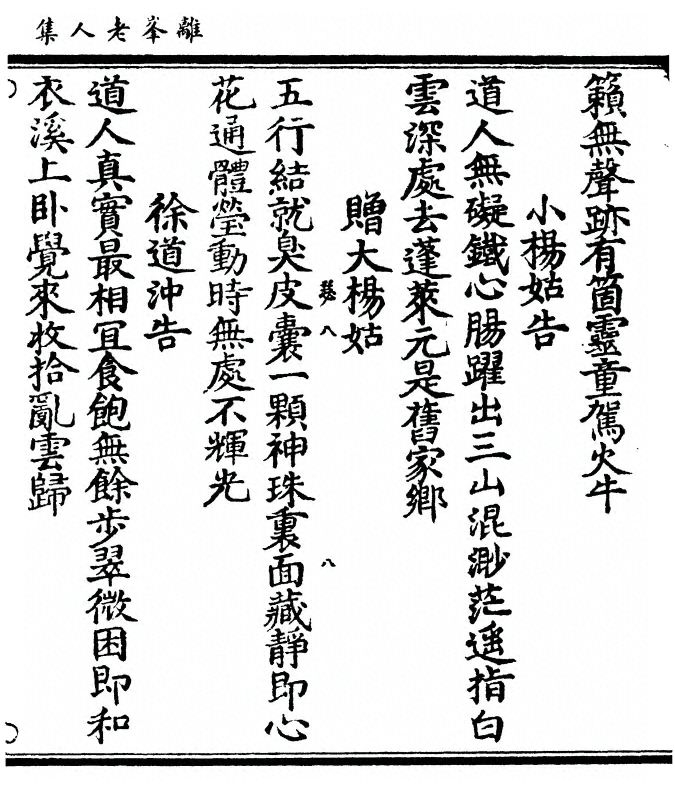 離峯老人集
籟無聲跡有箇靈童駕火牛
小楊姑告
道人無礙鐵心腸躍出三山混渺茫遥指白
雲深處去蓬萊元是舊家鄉
贈大楊姑
五行結就臭皮囊一顆神珠裏面藏靜即心
花通體瑩動時無處不輝光
徐道沖告
道人真實最相宜食飽無餘步翠微困即和
衣溪上卧覺來收拾亂雲歸
八
八